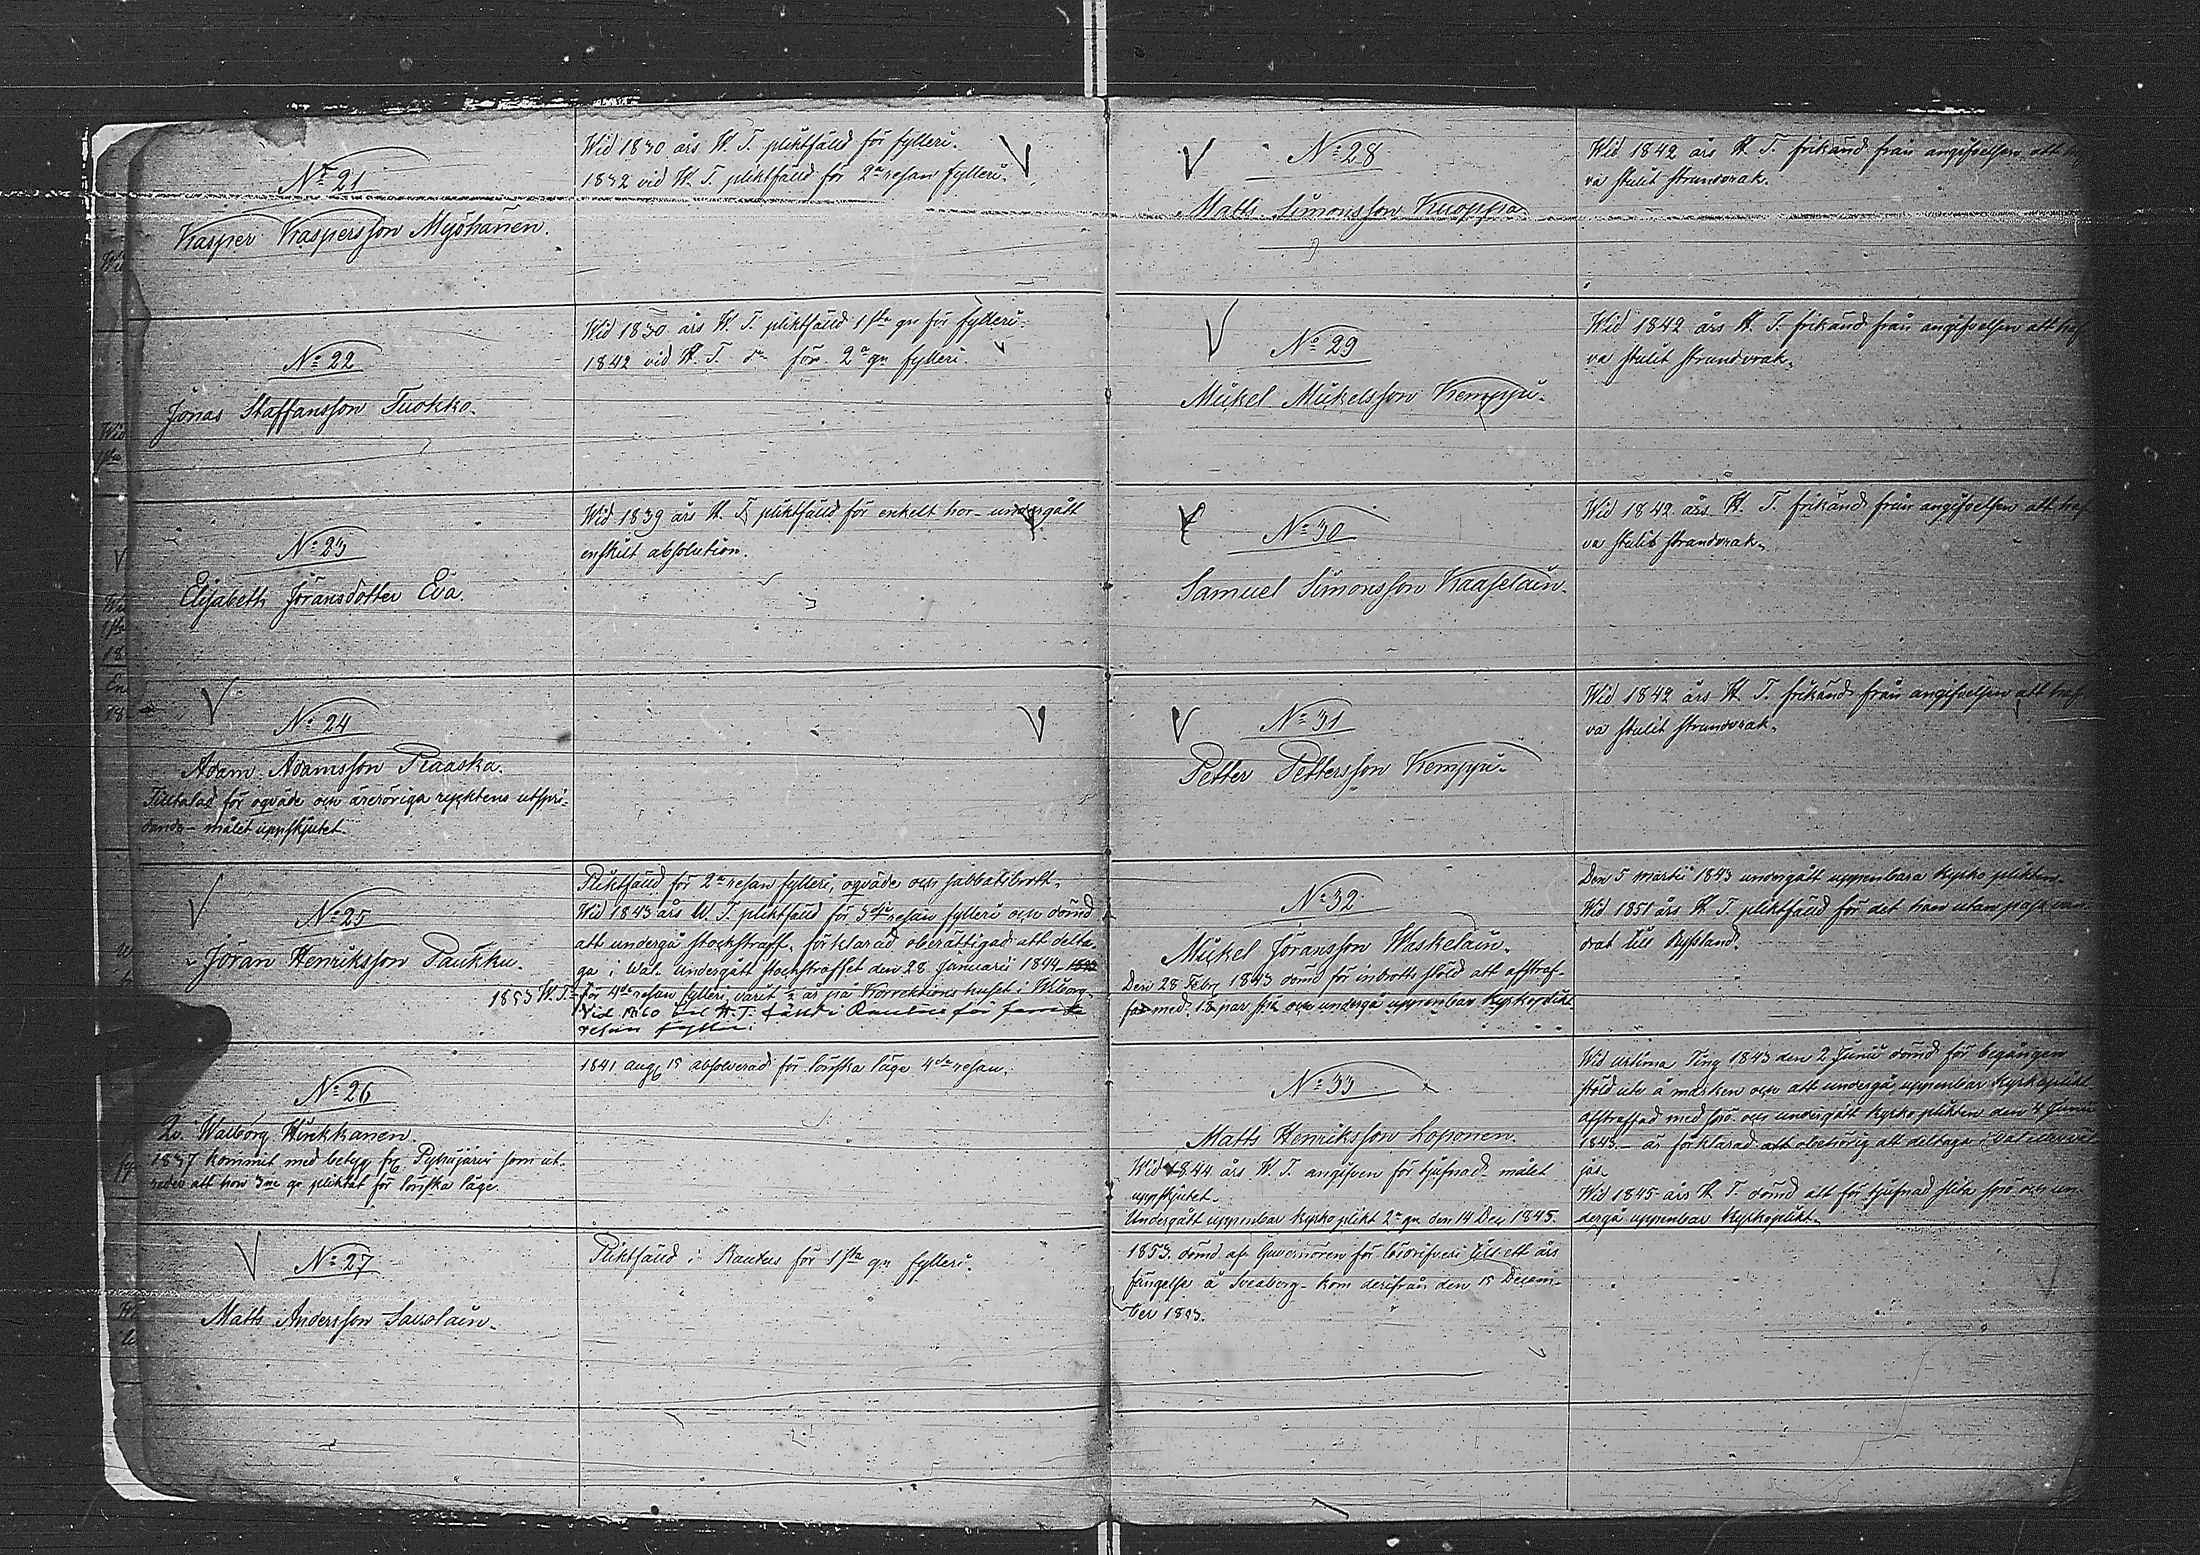 No 21
Kasper Kaspersson Myöhänen.
Wid 1830 års W. T. pliktfäld för fylleri.
1832 vid W. T. pliktfäld för 2a resan fylleri.
No 22
Jonas Staffansson Tuokko.
Wid 1830 års W. T. pliktfäld 1sta gn för fylleri.
1842 vid H. T. do för 2a gn fylleri.
No 23
Elisabeth Jöransdotter Eva.
Wid 1839 års H. T. pliktfäld för enkelt hor - undergått
enskilt absolution.
No 24
Adam Adamsson Raaska.
Tilltalad för oqväde och äreröriga ryktens utspri-
dande - målet uppskjutet.
No 25
Jöran Henriksson Paukku.
Pliktfäld för 2a resan fylleri, oqväde och sabbatsbrott.
Wid 1843 års W. T. pliktfäld för 3dje resan fylleri och dömd
att undergå stockstraff, förklarad oberättigad att delta-
ga i val. Undergått stockstraffet den 28 Januarii 1844
1853 W. T. för 4de resan fylleri, varit 2 år på Korrektionshuset i Wiborg.
Vid 1860 H. T. fälld i Rautus för femte
resan fylleri.
No 26
Walborg Hinkkanen.
1837 kommit med betyg fr. Pyhäjärvi som ut-
reder att hon 3ne gr pliktat för lönska läge.
1841 aug 15 absolverad för lönska läge 4de resan.
No 27
Matts Andersson Savolain.
Pliktfäld i Rautus för 1sta gn fylleri.
No 28
Matts Simonsson Kuoppa
Wid 1842 års H. T. frikänd från angifvelsen att haf-
va stulit strandvrak.
No 29
Mickel Mickelsson Kemppi.
Wid 1842 års H. T. frikänd från angifvelsen att haf-
va stulit strandvrak.
No 30
Samuel Simonsson Kaaselain.
Wid 1842 års H. T. frikänd från angifvelsen att haf-
va stulit strandvrak.
No 31
Petter Pettersson Kemppi.
Wid 1842 års H. T. frikänd från angifvelsen att haf-
va stulit strandvrak.
No 32
Mickel Jöransson Haskelain.
Den 28 Febr 1843 dömd för inbrotts stöld att afstraf-
fas med 18 par spö och undergå uppenbar kyrkoplikt.
Den 5 martii 1843 undergått uppenbara kyrkoplikten.
Wid 1851 års H. T. pliktfäld för det han utan pass van-
drat till Ryssland.
No 33
Matts Henriksson Loponen.
Wid 1844 års W. T. angifven för tjufnad målet
uppskjutet.
Undergått uppenbar kyrkoplikt 2a gn den 14 Dec 1845.
1853 dömd af Guvernören för lösdrifveri till ett års
fängelse å Sveaborg - kom derifrån den 15 Decem-
ber 1853.
Wid urtima Ting 1843 den 2 Junii dömd för begången
stöld ute å marken och att undergå uppenbar kyrkoplikt
afstraffad med spö och undergått kyrkoplikten den 4 Junii
1843 - är förklarad obehörig att deltaga i
Wid 1845 års H. T. dömd att för tjufnad slita spö och un-
dergå uppenbar kyrkoplikt.